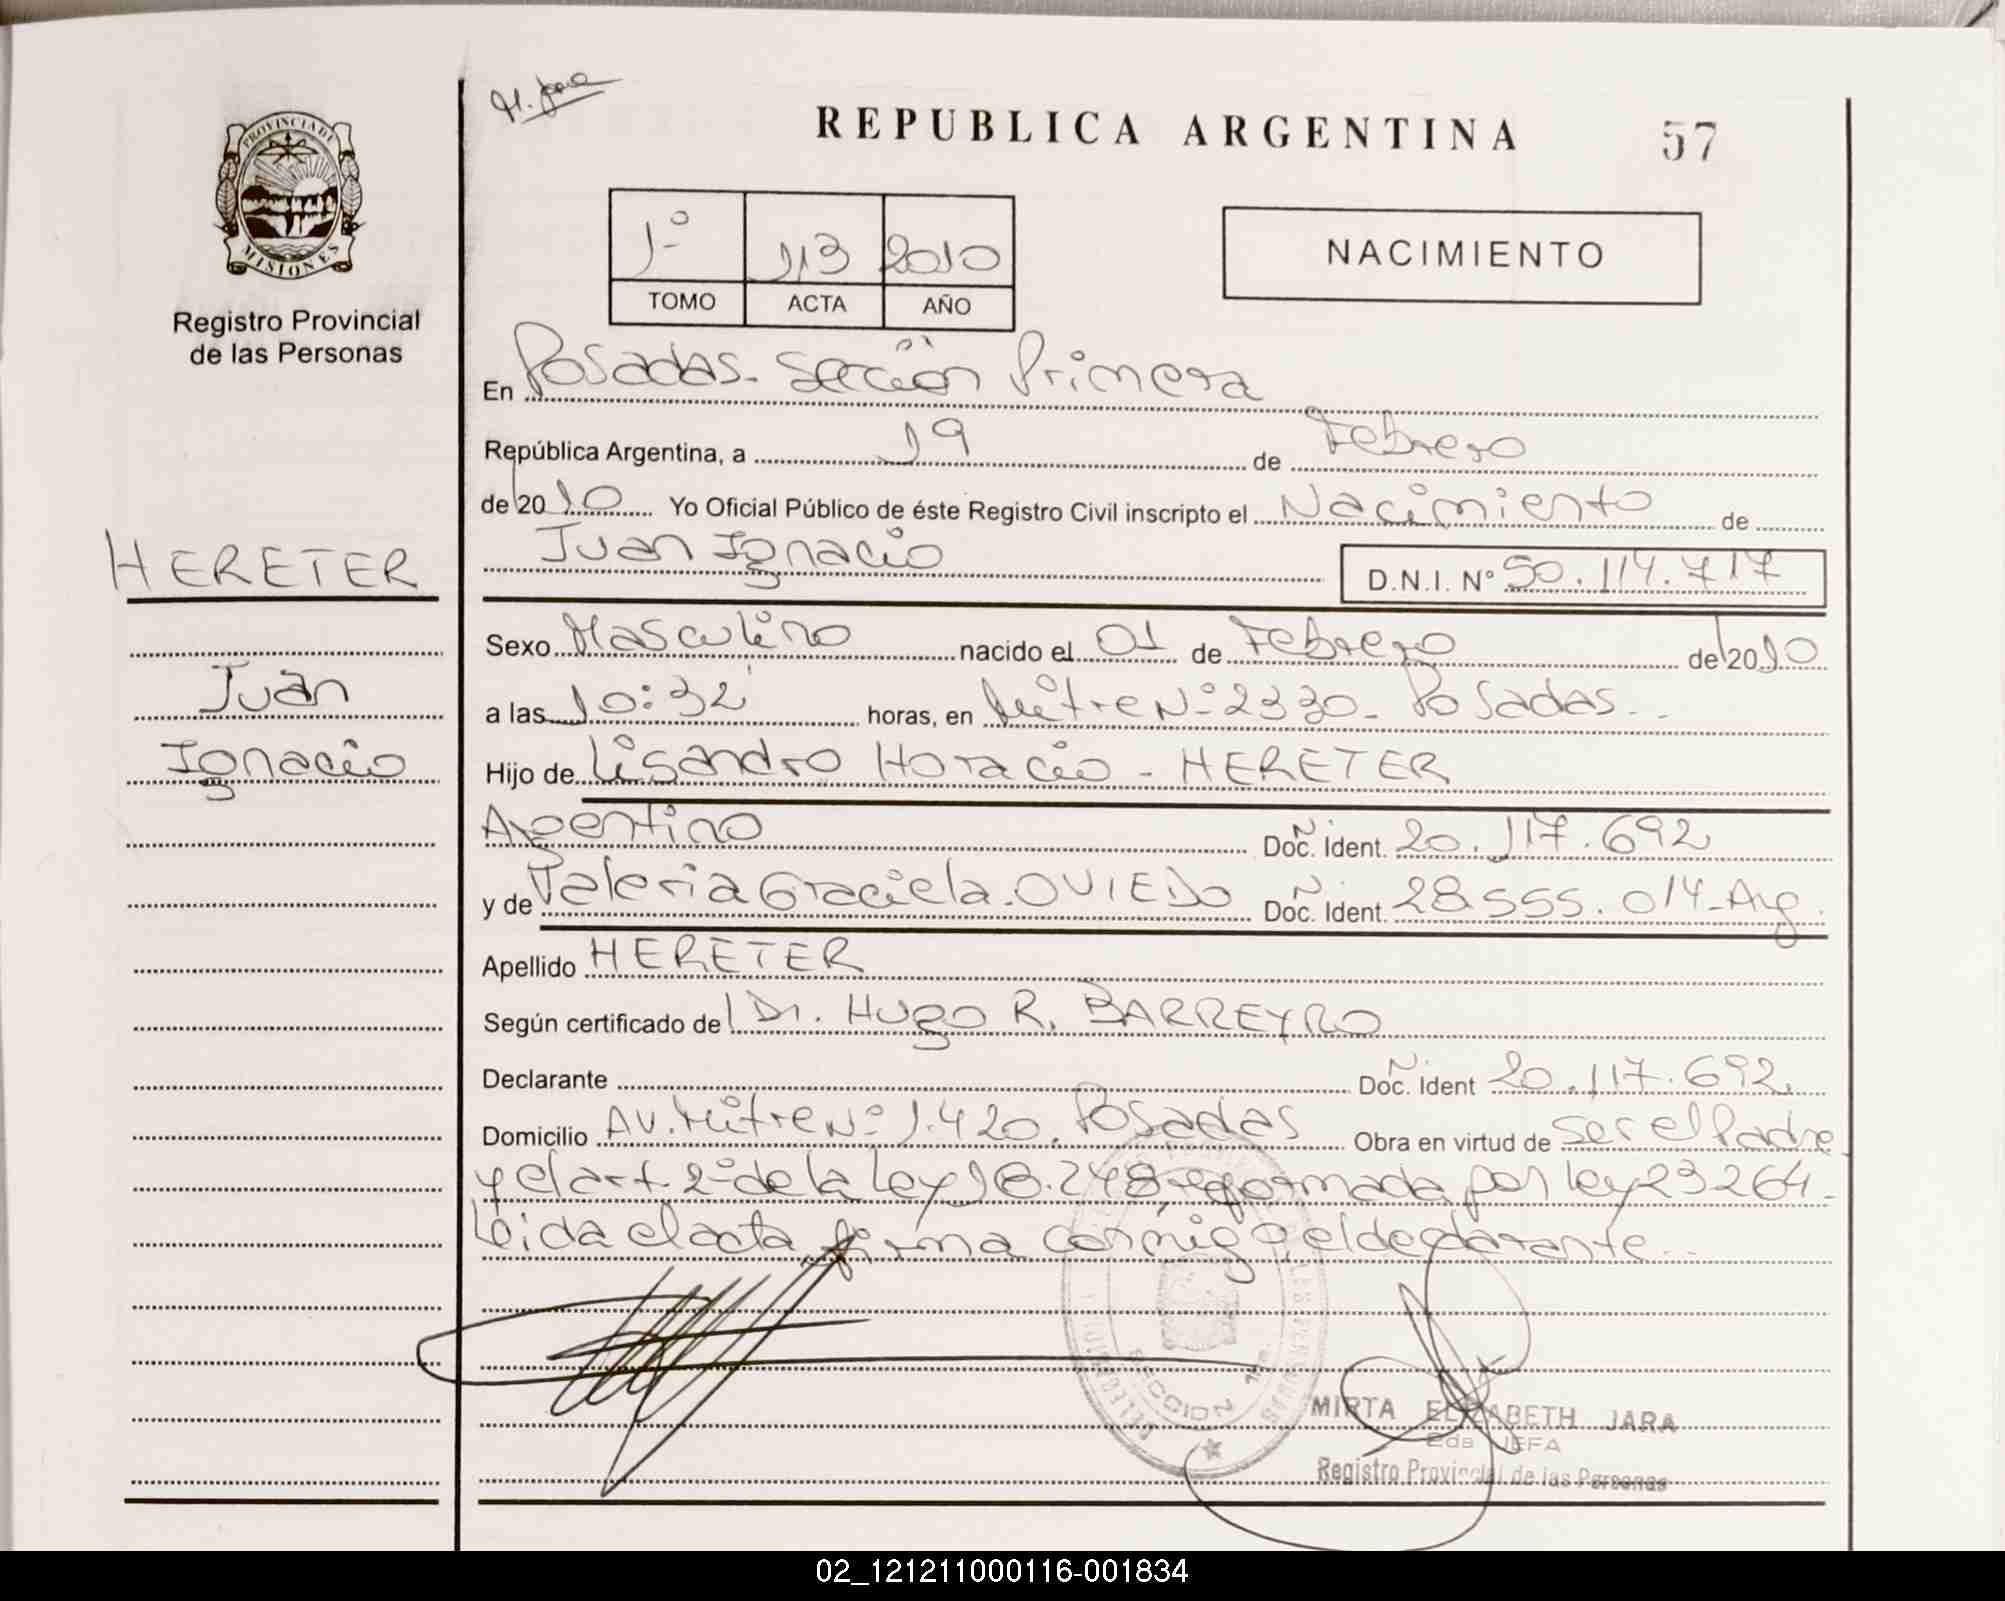 H. Jara
REPUBLICA ARGENTINA
57
PROVINCIA DE
MISIONES
Registro Provincial
de las Personas
1º 113 2010
TOMO ACTA AÑO
NACIMIENTO
En Posadas. Sección Primera
República Argentina, a 19 de Febrero
de 2010 Yo Oficial Público de éste Registro Civil inscripto el Nacimiento de
Juan Ignacio D.N.I. Nº 50.114.717
HERETER
Juan
Ignacio
Sexo Masculino nacido el 01 de Febrero de 2010
a las 10:32 horas, en Mitre Nº 2330 - Posadas.
Hijo de Lisandro Horacio - HERETER
Argentino Doc. Ident. Nº 20.117.692
y de Valeria Graciela OVIEDO Doc. Ident. Nº 28.555.014 - Arg.
Apellido HERETER
Según certificado de Dr. Hugo R. BARREYRO
Declarante Doc. Ident Nº 20.117.692
Domicilio Av. Mitre Nº 1.420. Posadas Obra en virtud de ser el Padre
y el art. 2º de la Ley 18.248 reformada por Ley 23264 -
Leida el acta, firma conmigo el declarante.
SECCION 1ra
MIRTA ELIZABETH JARA
2da JEFA
Registro Provincial de las Personas
02_121211000116-001834